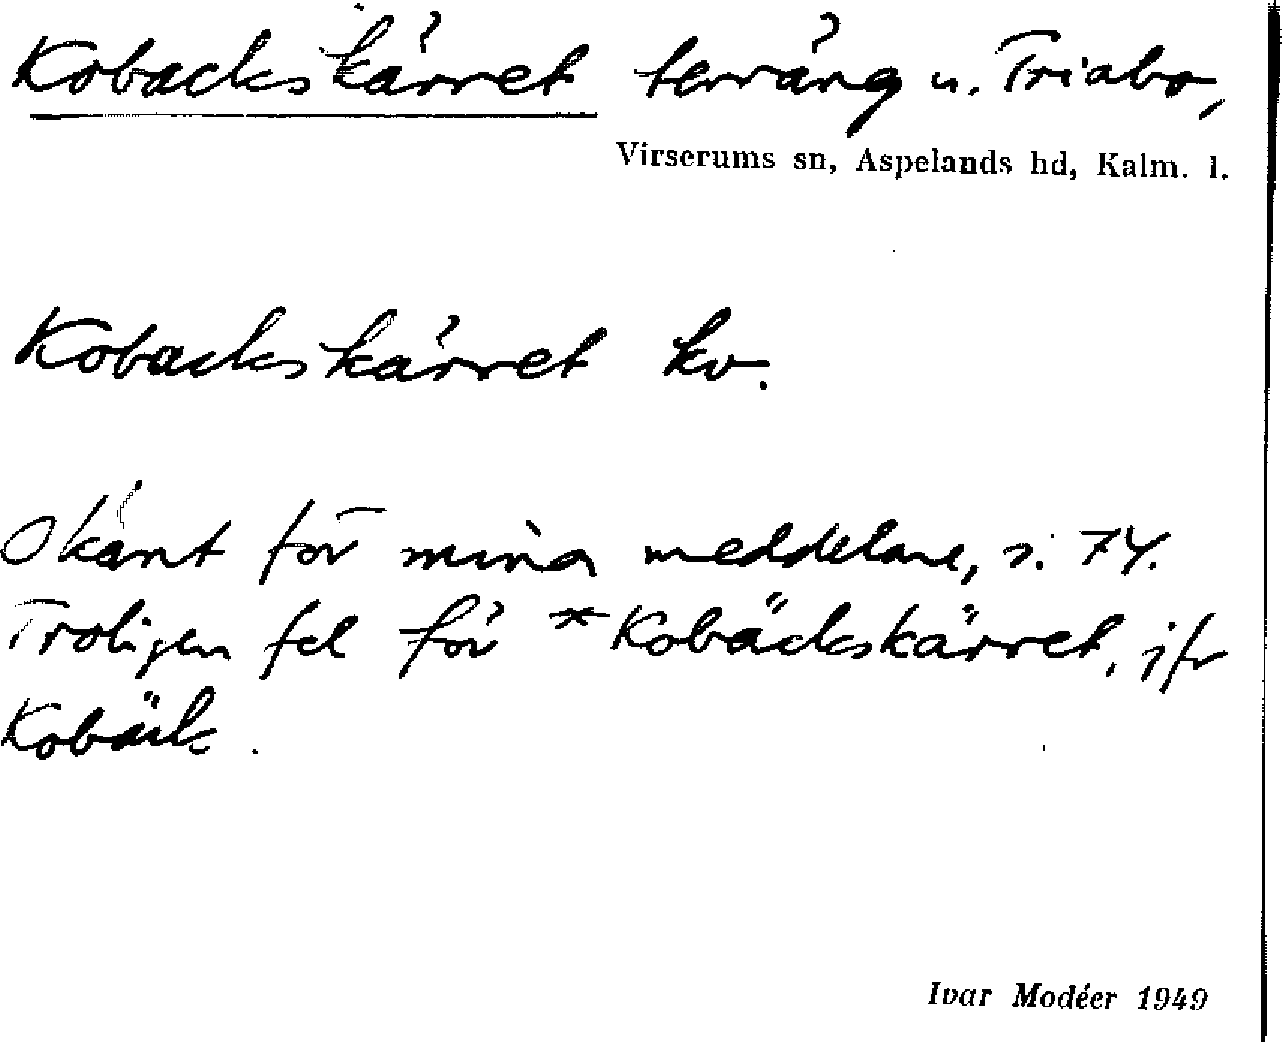 Kobackskärret terräng u. Triabo,
Virserums sn, Aspelands hd, Kalm. l.
Kobackskärret kv.
Okänt för mina meddelare, s. 74.
Troligen fel för *Kobäckskärret, jfr
Kobäck.
Ivar Modéer 1949